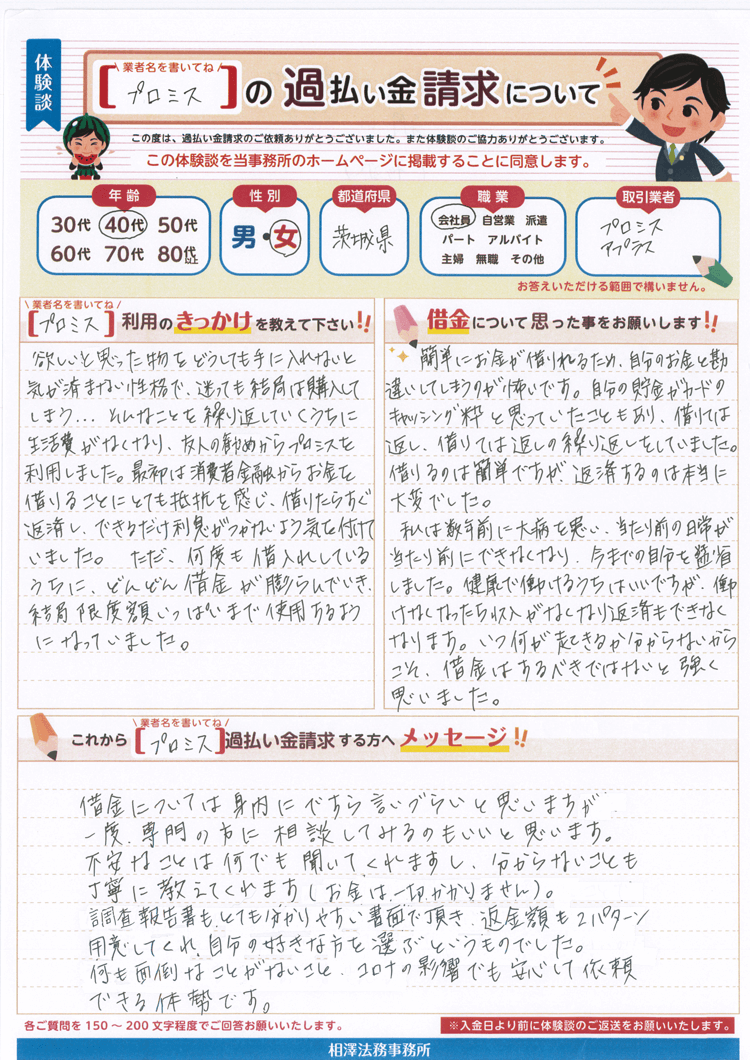 体験談
業者名を書いてね
[プロミス]の過払い金請求について
この度は、過払い金請求のご依頼ありがとうございました。また体験談のご協力ありがとうございます。
この体験談を当事務所のホームページに掲載することに同意します。
年齢
30代 40代 50代
60代 70代 80代以上
性別
男・女
都道府県
茨城県
職業
会社員 自営業 派遣
パート アルバイト
主婦 無職 その他
取引業者
プロミス
アプラス
お答えいただける範囲で構いません。
業者名を書いてね
[プロミス]利用のきっかけを教えて下さい!!
欲しいと思った物をどうしても手に入れないと
気が済まない性格で、迷っても結局は購入して
しまう…そんなことを繰り返していくうちに
生活費がなくなり、友人の勧めからプロミスを
利用しました。最初は消費者金融からお金を
借りることにとても抵抗を感じ、借りたらすぐ
返済し、できるだけ利息がつかないよう気を付けて
いました。ただ、何度も借入れしている
うちに、どんどん借金が膨らんでいき、
結局限度額いっぱいまで使用するよう
になっていました。
借金について思った事をお願いします!!
簡単にお金が借りれるため、自分のお金と勘
違いしてしまうのが怖いです。自分の貯金がカードの
キャッシング枠と思っていたこともあり、借りては
返し、借りては返しの繰り返しをしていました。
借りるのは簡単ですが、返済するのは本当に
大変でした。
私は数年前に大病を患い、当たり前の日常が
当たり前にできなくなり、今までの自分を猛省
しました。健康で働けるうちはいいですが、働
けなくなったら収入がなくなり返済もできなく
なります。いつ何が起きるか分からないから
こそ、借金はあるべきではないと強く
思いました。
業者名を書いてね
これから[プロミス]過払い金請求する方へメッセージ!!
借金については身内にですら言いづらいと思いますが
一度、専門の方に相談してみるのもいいと思います。
不安なことは何でも聞いてくれますし、分からないことも
丁寧に教えてくれます(お金は一切かかりません)。
調査報告書も、とても分かりやすい書面で頂き、返金額も2パターン
用意してくれ、自分の好きな方を選ぶというものでした。
何も面倒なことがないこと、コロナの影響でも安心して依頼
できる体勢です。
各ご質問を150〜200文字程度でご回答お願いいたします。
※入金日より前に体験談のご返送をお願いいたします。
相澤法務事務所